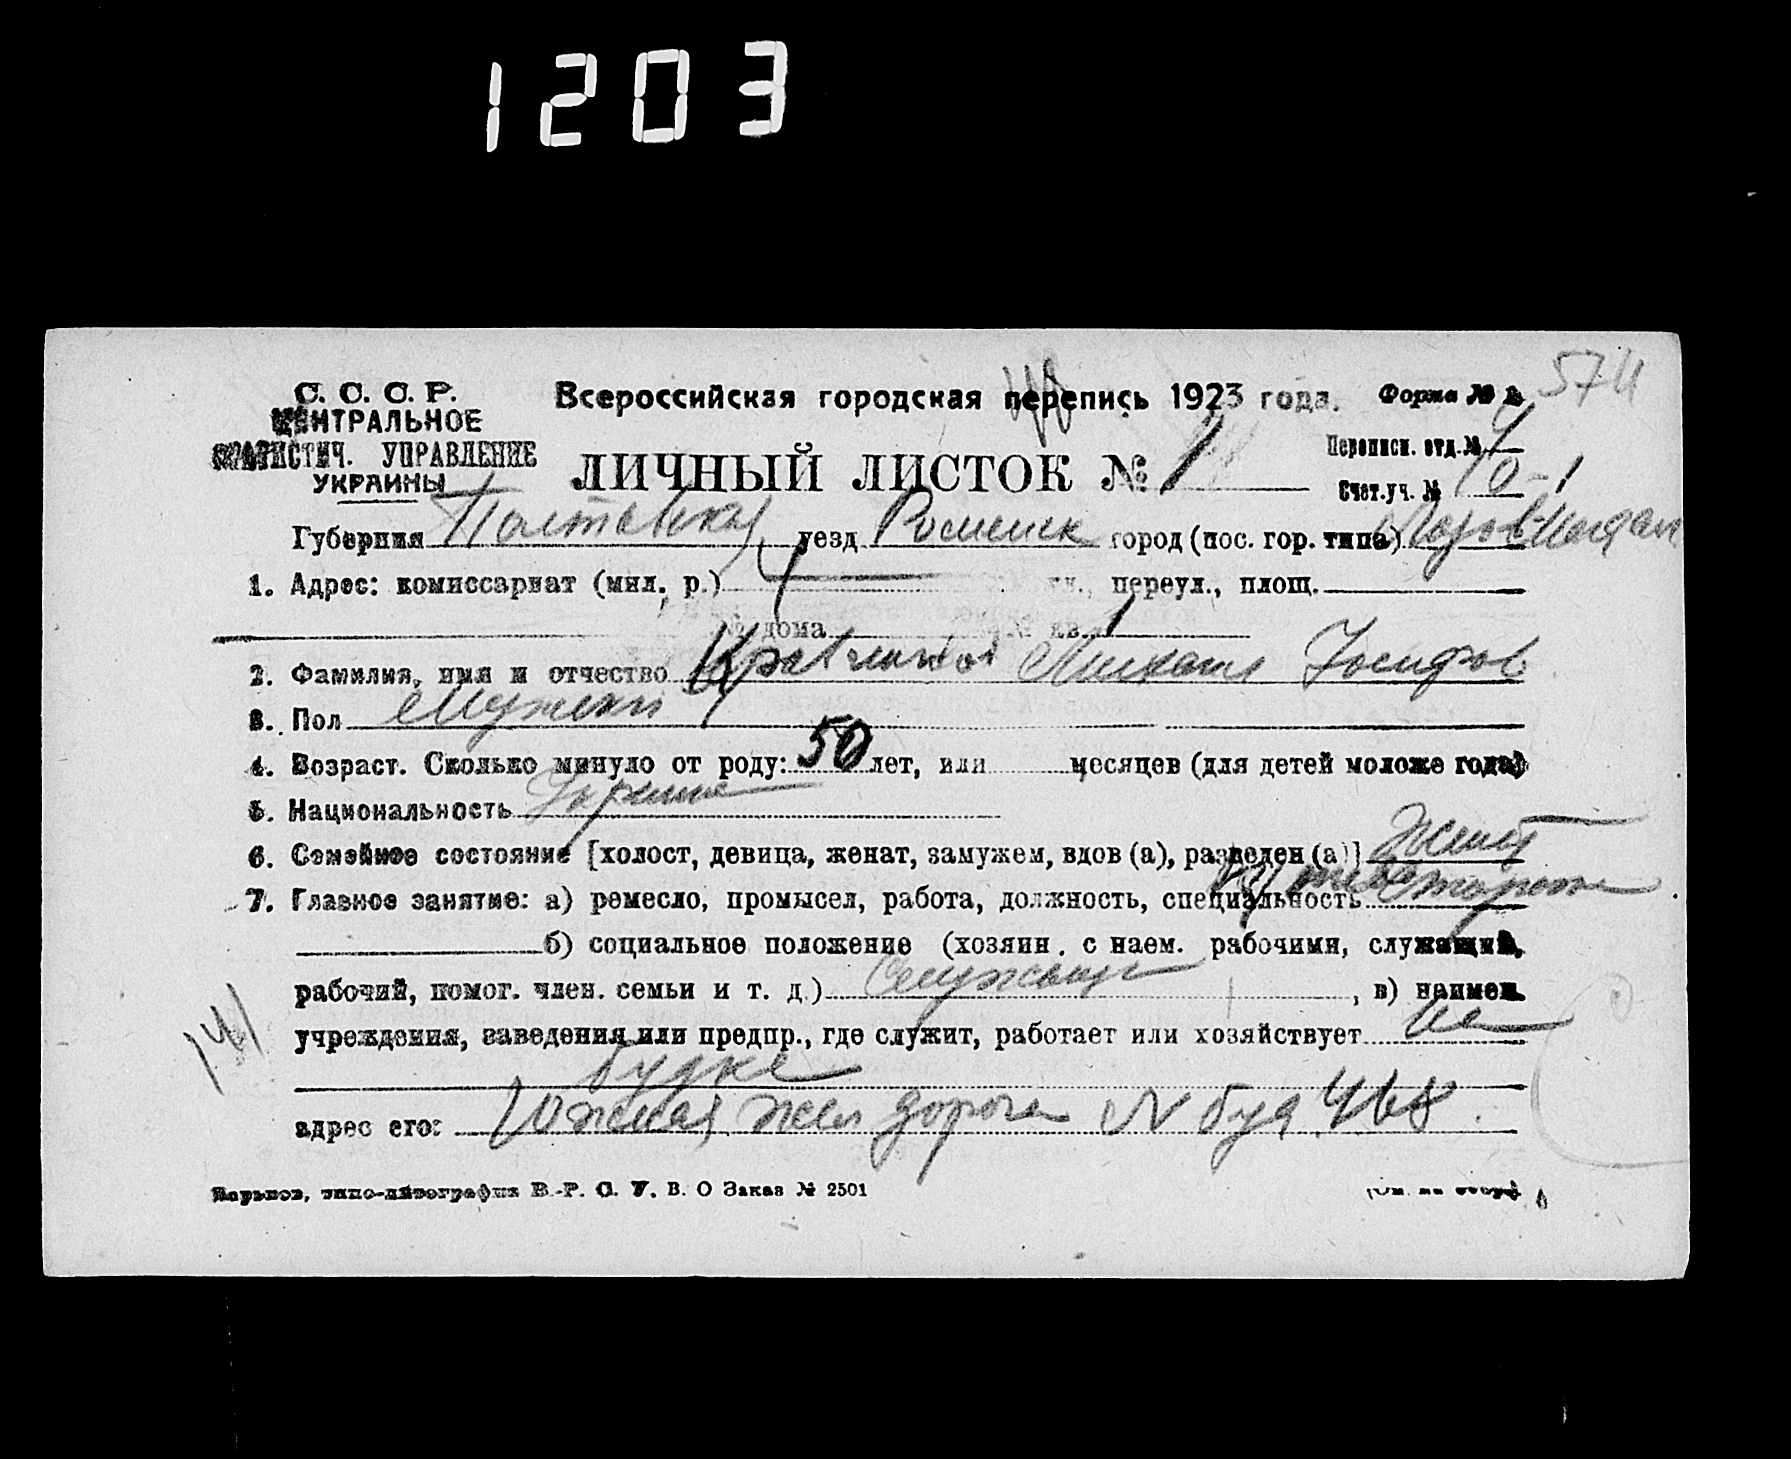 1203
С. С. С. Р.
ЦЕНТРАЛЬНОЕ
СТАТИСТИЧ. УПРАВЛЕНИЕ
УКРАИНЫ
Всероссийская городская перепись 1923 года.
Форма № 2
574
ЛИЧНЫЙ ЛИСТОК № 1
Переписн. отд. №
Счет.уч. №
Губерния Полтавская уезд Роменск город (пос. гор. типа)
1. Адрес: комиссариат (мил. р.) ул., переул., площ.
№ дома № кв. 1
2. Фамилия, имя и отчество Михаил Иосифов
3. Пол Мужской
4. Возраст. Сколько минуло от роду: 50 лет, или месяцев (для детей моложе года)
5. Национальность
6. Семейное состояние [холост, девица, женат, замужем, вдов (а), разведен (а)] Женат
7. Главное занятие: а) ремесло, промысел, работа, должность, специальность
б) социальное положение (хозяин. с наем. рабочими, служащий,
рабочий, помог. член. семьи и т. д.) Служащий, в) наимен.
учреждения, заведения или предпр., где служит, работает или хозяйствует на
будке
адрес его: Южная жел дорога N буд 468
141
Харьков, типо-литография В.-Р. С. У. В. О Заказ № 2501